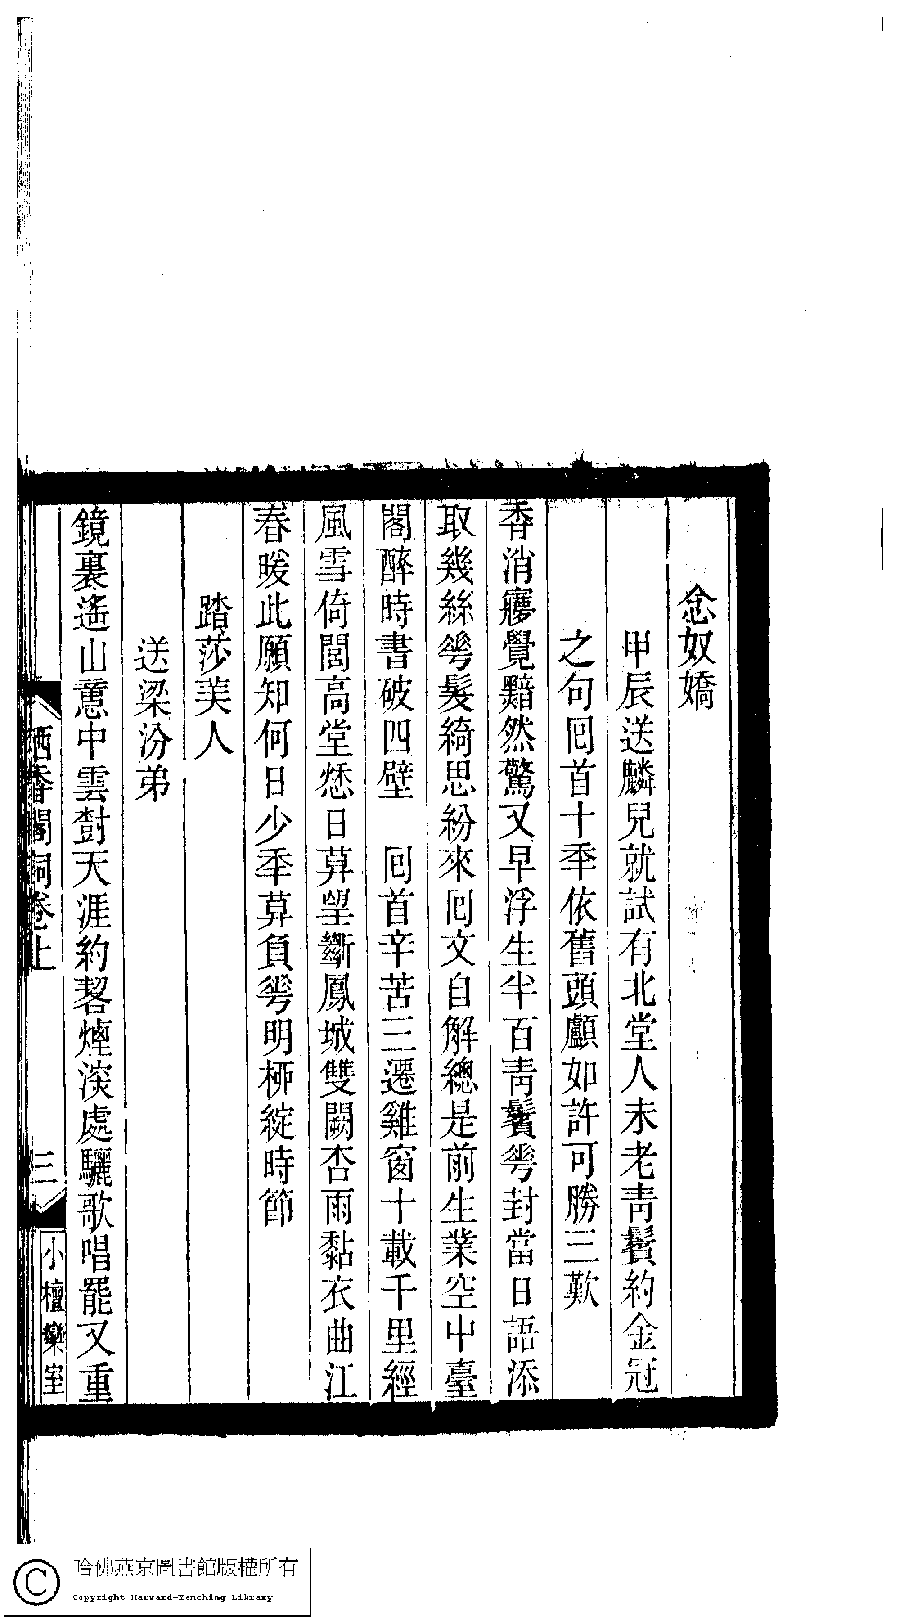 念奴嬌
甲辰送麟兒就試有北堂人未老青鬢約金冠
之句囘首十年依舊頭顱如許可勝三歎
香消㝱覺黯然驚又早浮生半百青鬢䔢封當日語添
取幾絲䔢髮綺思紛來囘文自解總是前生業空中臺
閣醉時書破四壁　囘首辛苦三遷雞窗十載千里經
風雪倚閭高堂愁日莫望斷鳳城雙闕杏雨黏衣曲江
春暖此願知何日少年莫負䔢明桺綻時節
踏莎美人
送梁汾弟
鏡裏遙山意中雲樹天涯約畧煙深處驪歌唱罷又重
栖香閣詞卷上
三
小檀欒室
哈佛燕京圖書館版權所有
Copyright Harvard-Yenching Library